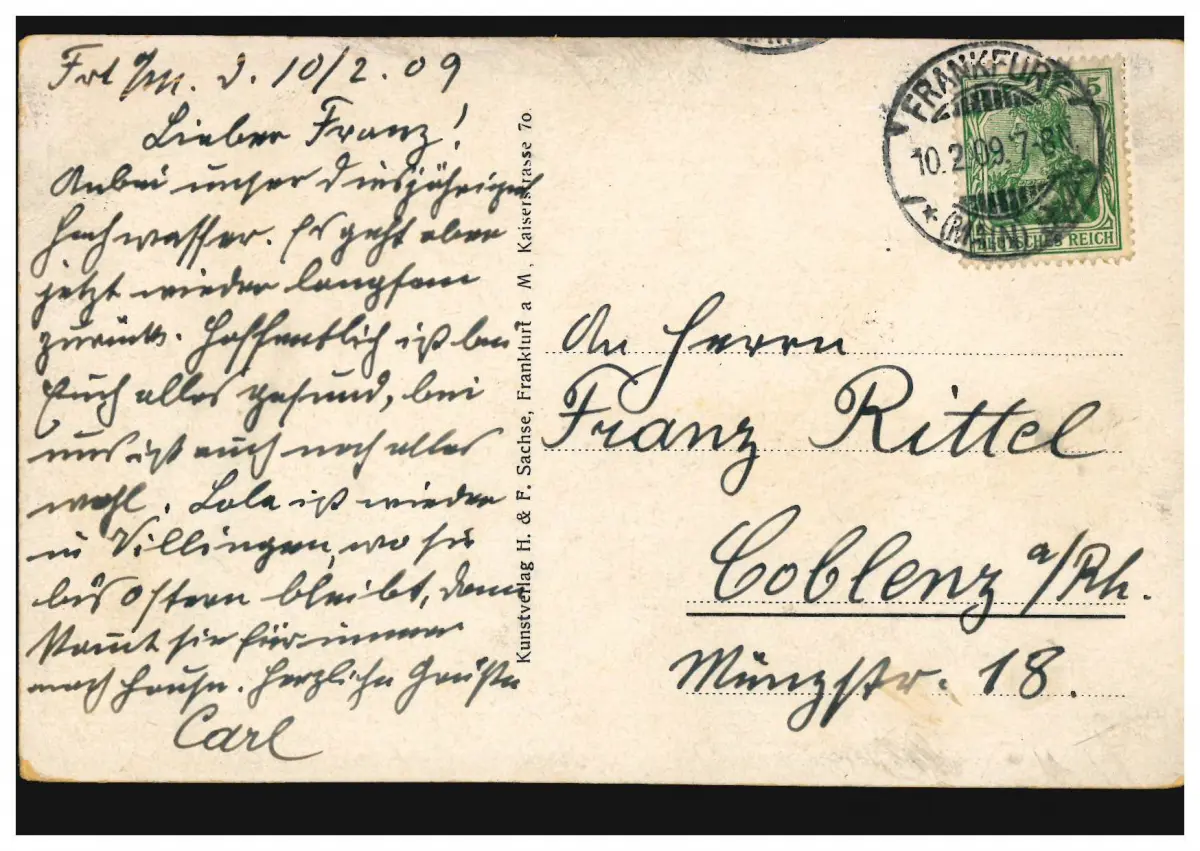 Frt a/M. d. 10/2.09
Lieber Franz!
Anbei unser diesjähriges
Hochwasser. Es geht aber
jetzt wieder langsam
zurück. Hoffentlich ist bei
Euch alles gesund, bei
uns ist auch noch alles
wohl. Lola ist wieder
in Villingen, wo sie
bis Ostern bleibt, dann
kommt sie für immer
nach Hause. Herzliche Grüße
Carl
Kunstverlag H. & F. Sachse, Frankfurt a M, Kaiserstrasse 70
FRANKFURT
10.2.09. 7-8N.
* (MAIN)
5
DEUTSCHES REICH
An Herrn
Franz Rittel
Coblenz a/Rh.
Münzstr. 18.